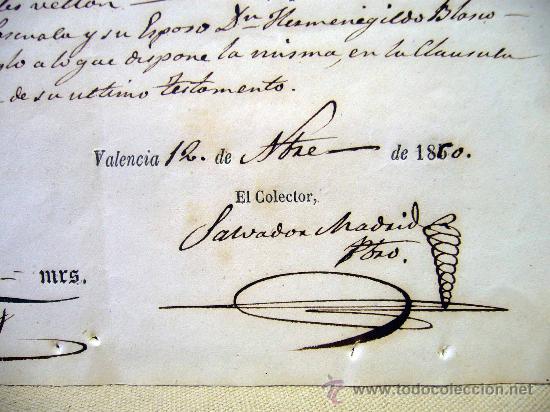 les vellon.
Pascuala y su Esposo Dn Hermenegildo Blasco
glo a lo que dispone la misma, en la Clausula
de su ultimo testamento.
Valencia 12. de Nbre de 1860.
El Colector,
Salvador Madrid
Pbro.
mrs.
todocoleccion
www.todocoleccion.net